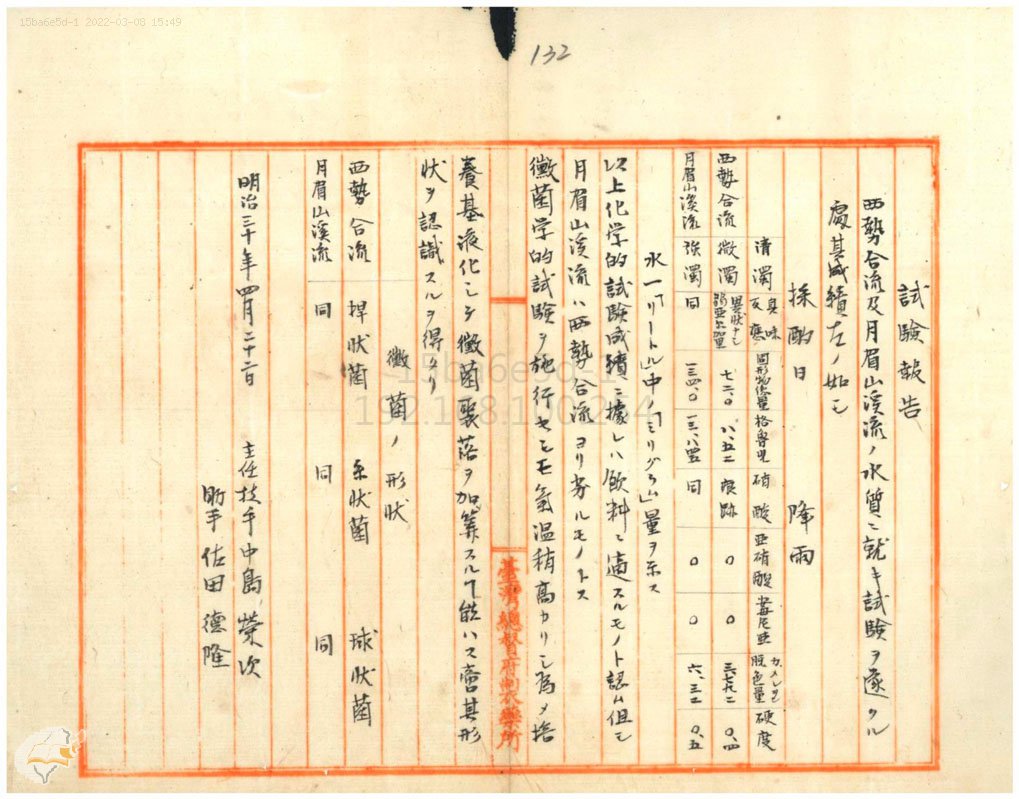 15ba6e5d-1 2022-03-08 15:49
132
試験報告
西勢合流及月眉山渓流ノ水質ニ就キ試験ヲ遂クル
處其成績左ノ如シ
採酌日 降雨
清濁 臭味 反應 固形物總量 格魯兒 硝酸 亜硝酸 安母尼亜 カメレオン脱色量 硬度
西勢合流 微濁 異状ナシ 弱亜尓加里 七二、〇 八、五二 痕跡 〇 〇 〇、四
月眉山渓流 強濁 同 一三四、〇 同 〇 〇 六、三二 〇、五
水一「リートル」中「ミリグラム」量ヲ示ス
以上化学的試験成績ニ據レハ飲料ニ適スルモノト認ム但シ
月眉山渓流ハ西勢合流ヨリ劣ルモノトス
黴菌学的試験ヲ施行セシモ氣温稍高カリシ為メ培
養基液化シテ黴菌聚落ヲ加算スル能ハス啻其形
状ヲ認識スルヲ得タリ
黴菌ノ形状
西勢合流 捍状菌 糸状菌 球状菌
月眉山渓流 同 同 同
明治三十年四月二十二日 主任技手中島榮次
助手佐田德隆
臺灣總督府製藥所
15ba6e5d-1
192.168.100.254